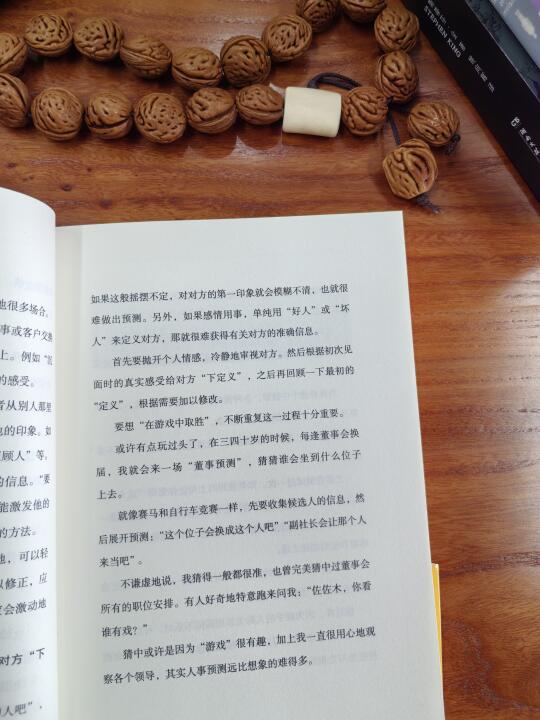 STEPHEN KING
也很多场合，
事或客户交换
上。例如“说
的感受。
者从别人那里
也的印象。如
顾人”等，
的信息。“要
能激发他的
的方法。
也，可以轻
以修正，应
会激动地
对方“下
的人吧”，
如果这般摇摆不定，对对方的第一印象就会模糊不清，也就很
难做出预测。另外，如果感情用事，单纯用“好人”或“坏
人”来定义对方，那就很难获得有关对方的准确信息。
首先要抛开个人情感，冷静地审视对方。然后根据初次见
面时的真实感受给对方“下定义”，之后再回顾一下最初的
“定义”，根据需要加以修改。
要想“在游戏中取胜”，不断重复这一过程十分重要。
或许有点玩过头了，在三四十岁的时候，每逢董事会换
届，我就会来一场“董事预测”，猜猜谁会坐到什么位子
上去。
就像赛马和自行车竞赛一样，先要收集候选人的信息，然
后展开预测：“这个位子会换成这个人吧”“副社长会让那个人
来当吧”。
不谦虚地说，我猜得一般都很准，也曾完美猜中过董事会
所有的职位安排。有人好奇地特意跑来问我：“佐佐木，你看
谁有戏？”
猜中或许是因为“游戏”很有趣，加上我一直很用心地观
察各个领导，其实人事预测远比想象的难得多。